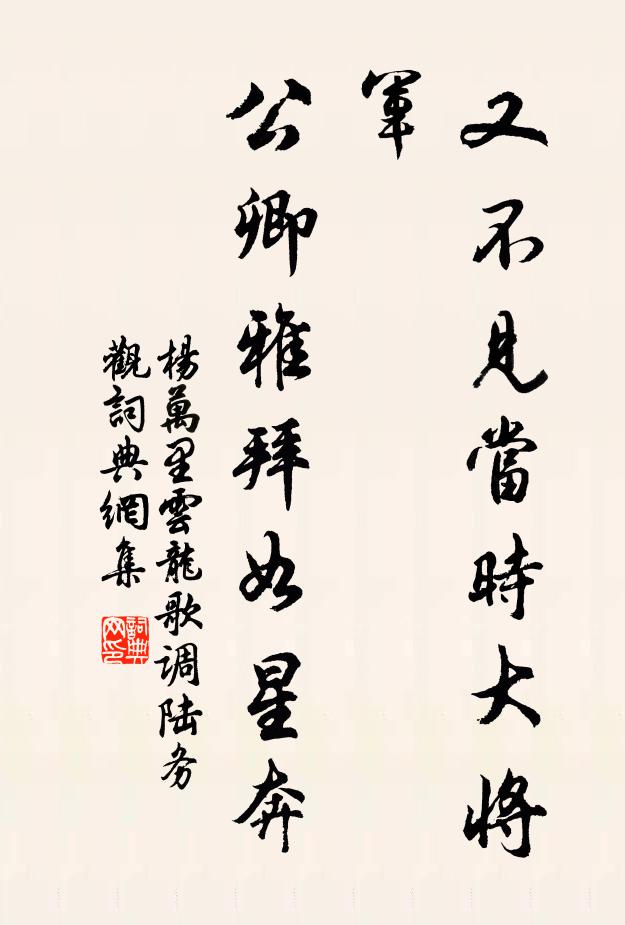 又不見當時大將
軍
公卿雅拜如星奔
楊萬里雲龍歌调陆务
觀詞典網集
詞典
网印